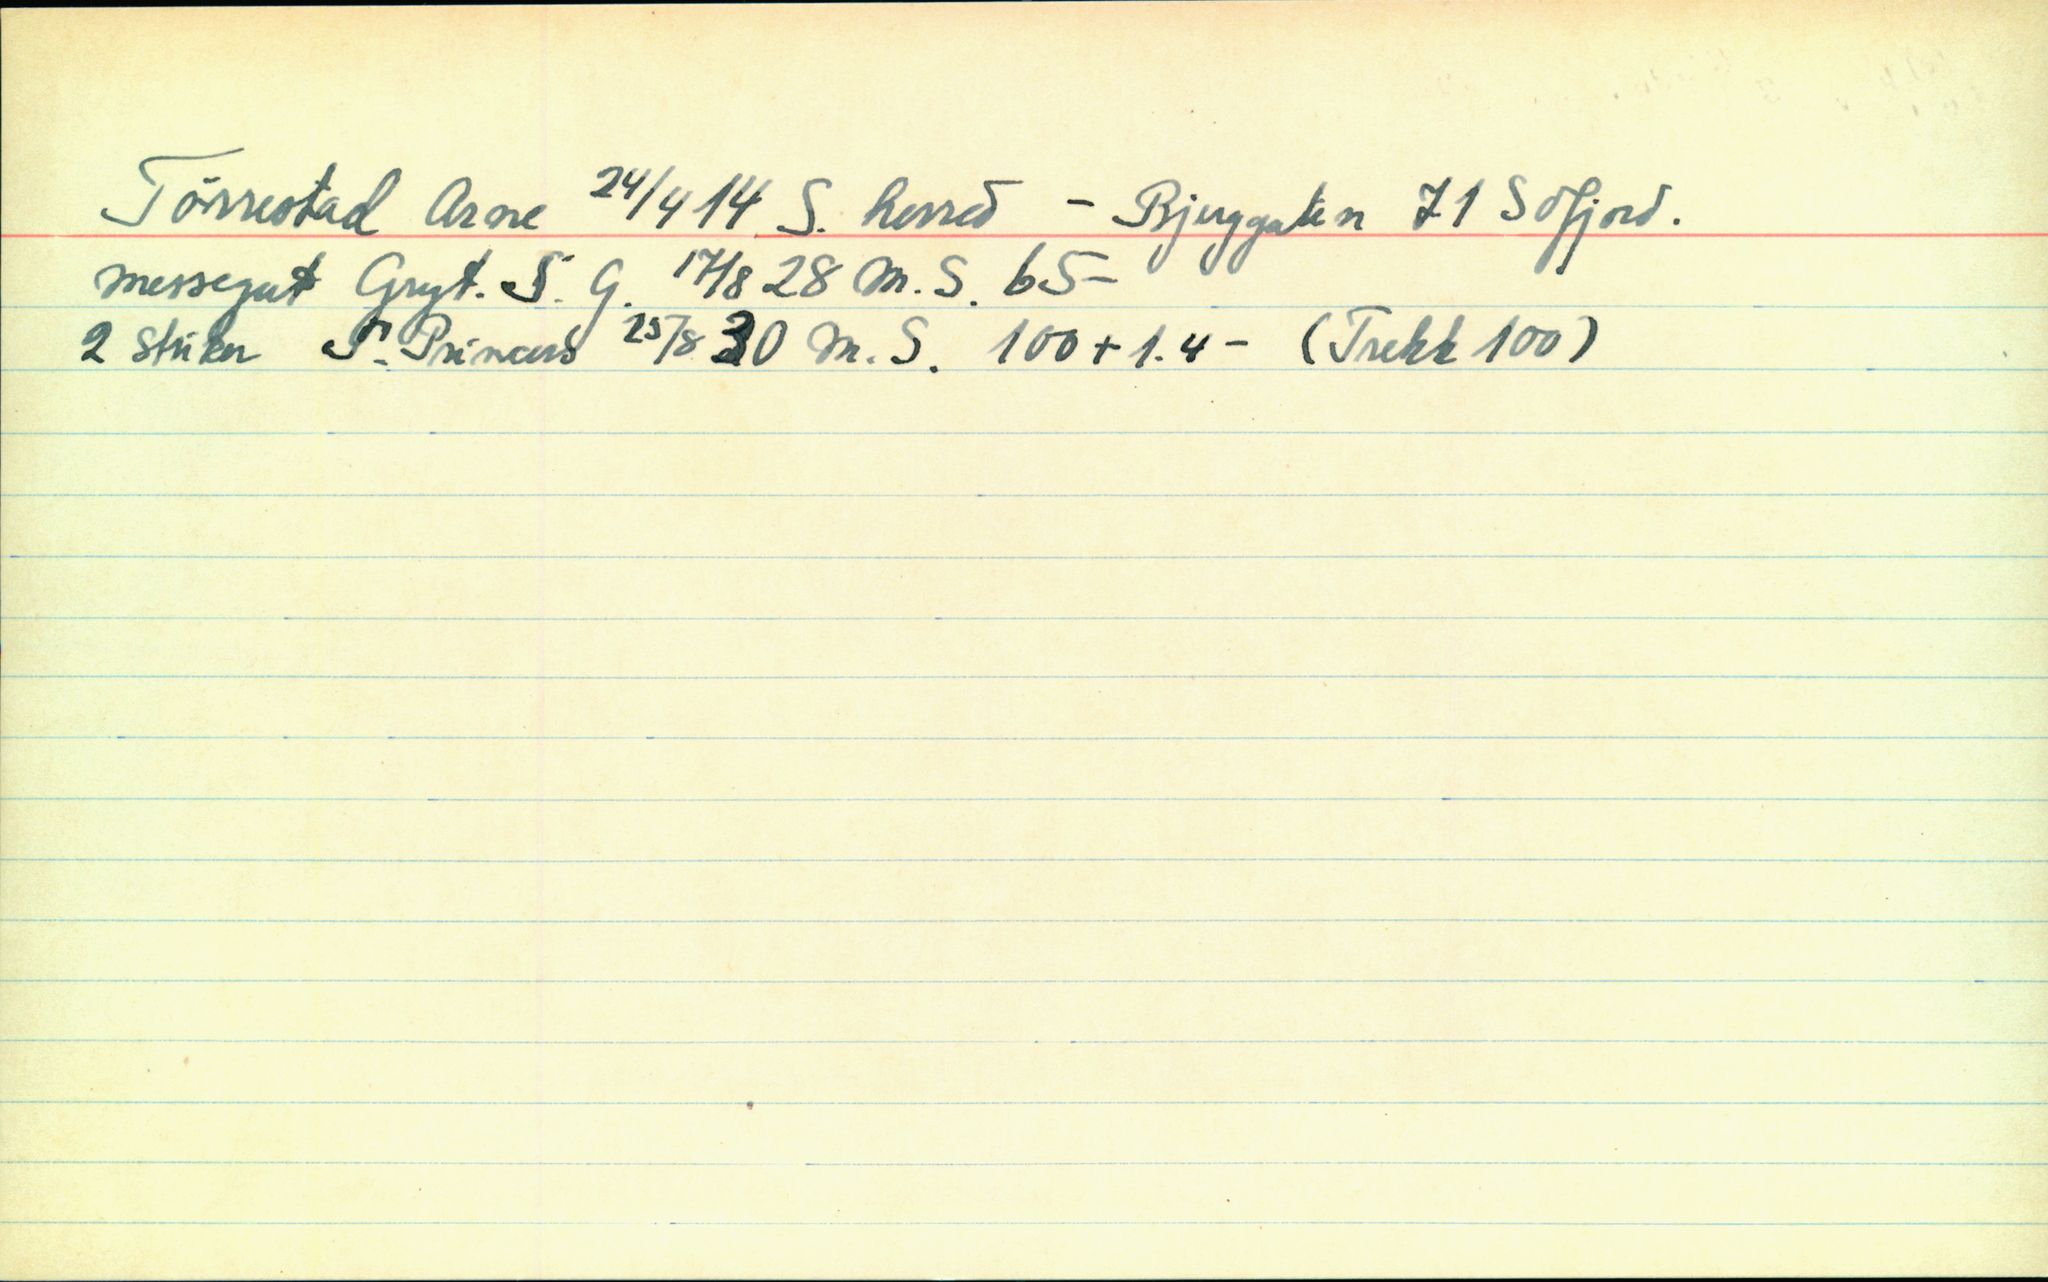 Törrestad Arne 24/4 14 S. herred - Bjerggaten 71 S ôfjord.
messegut Gryt. S. G. 17/8 28 M.S. 65-
2 Stuker S. Princess 25/8 30 M.S. 100 + 1.4 - (Trekk 100)